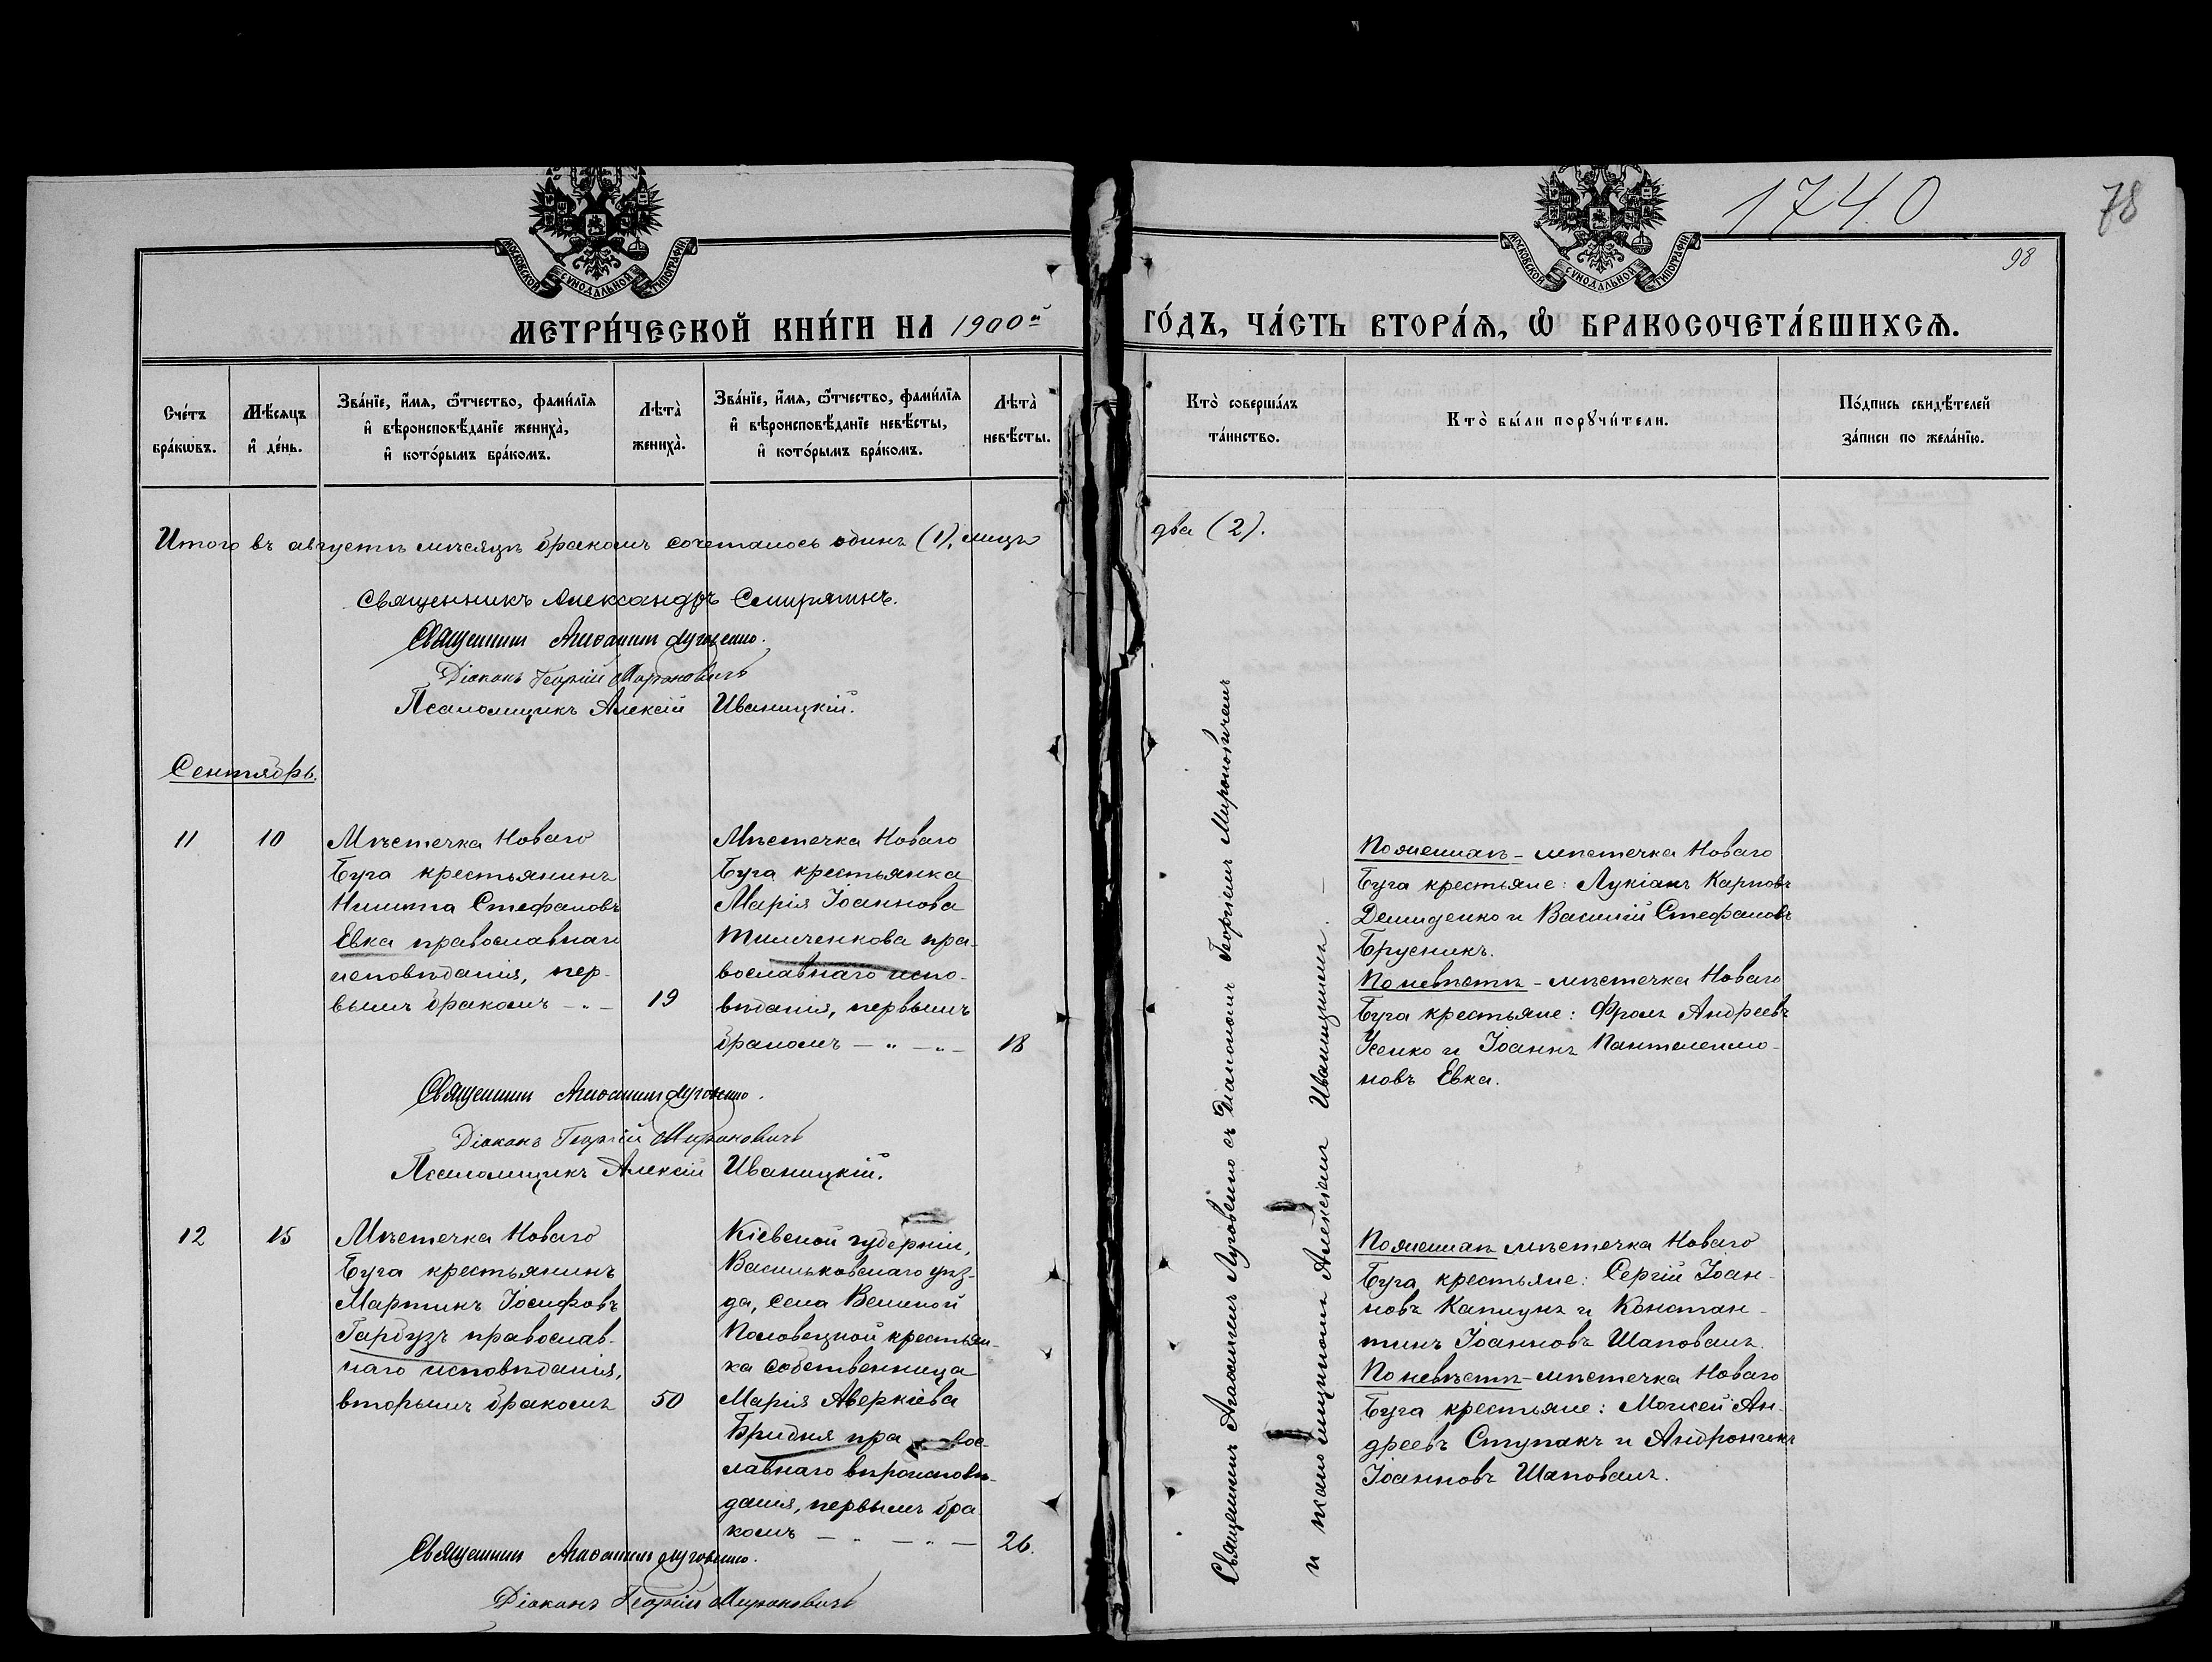 1740
78
98
МОСКОВСКОЙ СУНОДАЛЬНОЙ ТИПОГРАФИИ
МОСКОВСКОЙ СУНОДАЛЬНОЙ ТИПОГРАФИИ
МЕТРИ́ЧЕСКОЙ КНИ́ГИ НА 1900й ГО́ДЪ, ЧА́СТЬ ВТОРА́Я, Ѡ҆ БРАКОСОЧЕТА́ВШИХСѦ.
Сче́тъ бра́кѡвъ.
Мѣ́сяцъ и҆ де́нь.
Зва́нїе, и҆́мя, ѻ҆́тчество, фами́лїя и҆ вѣроисповѣ́данїе жениха̀, и҆ кото́рымъ бра́комъ.
Лѣта̀ жениха̀.
Зва́нїе, и҆́мя, ѻ҆́тчество, фами́лїя и҆ вѣроисповѣ́данїе невѣ́сты, и҆ кото́рымъ бра́комъ.
Лѣта̀ невѣ́сты.
Кто̀ соверша́лъ та́инство.
Кто̀ бы́ли порꙋчи́тели.
По́дпись свидѣ́телей за́писи по жела́нїю.
Итого въ августѣ мѣсяцѣ бракомъ сочеталось одинъ (1), лицъ два (2).
Священникъ Александръ Смирягинъ.
Священникъ Агаѳангелъ Луговенко.
Діаконъ Георгій Мироновичъ
Псаломщикъ Алексій Иваницкій.
Сентябрь.
11
10
Мѣстечка Новаго
Буга крестьянинъ
Никита Стефановъ
Евка православнаго
исповѣданія, пер-
вымъ бракомъ - „ -
19
Мѣстечка Новаго
Буга крестьянка
Марія Іоаннова
Тимченкова пра-
вославнаго испо-
вѣданія, первымъ
бракомъ - „ - „ -
18
По женихѣ - мѣстечка Новаго
Буга крестьяне: Лукіанъ Карповъ
Демиденко и Василій Стефановъ
Брусникъ.
По невѣстѣ - мѣстечка Новаго
Буга крестьяне: Фролъ Андреевъ
Усенко и Іоаннъ Пантелеимо-
новъ Евка.
Священникъ Агаѳангелъ Луговенко.
Діаконъ Георгій Мироновичъ
Псаломщикъ Алексій Иваницкій.
12
15
Мѣстечка Новаго
Буга крестьянинъ
Мартинъ Іосифовъ
Гарбузъ православ-
наго исповѣданія,
вторымъ бракомъ
50
Кіевской губерніи,
Васильковскаго уѣз-
да, села Великой
Половецкой крестьян-
ка собственница
Марія Аверкіева
Бридня пра вос-
лавнаго вѣроисповѣ-
данія, первымъ бра
комъ - „ - „ -
26.
По женихѣ мѣстечка Новаго
Буга крестьяне: Сергій Іоан-
новъ Каплунъ и Констан-
тинъ Іоанновъ Шаповалъ.
По невѣстѣ - мѣстечка Новаго
Буга крестьяне: Моисей Ан-
дреевъ Ступакъ и Андроникъ
Іоанновъ Шаповалъ.
Священникъ Агаѳангелъ Луговенко.
Діаконъ Георгій Мироновичъ
Священникъ Агаѳангелъ Луговенко съ діакономъ Георгіемъ Мироновичемъ
и псаломщикомъ Алексіемъ Иваницкимъ. -